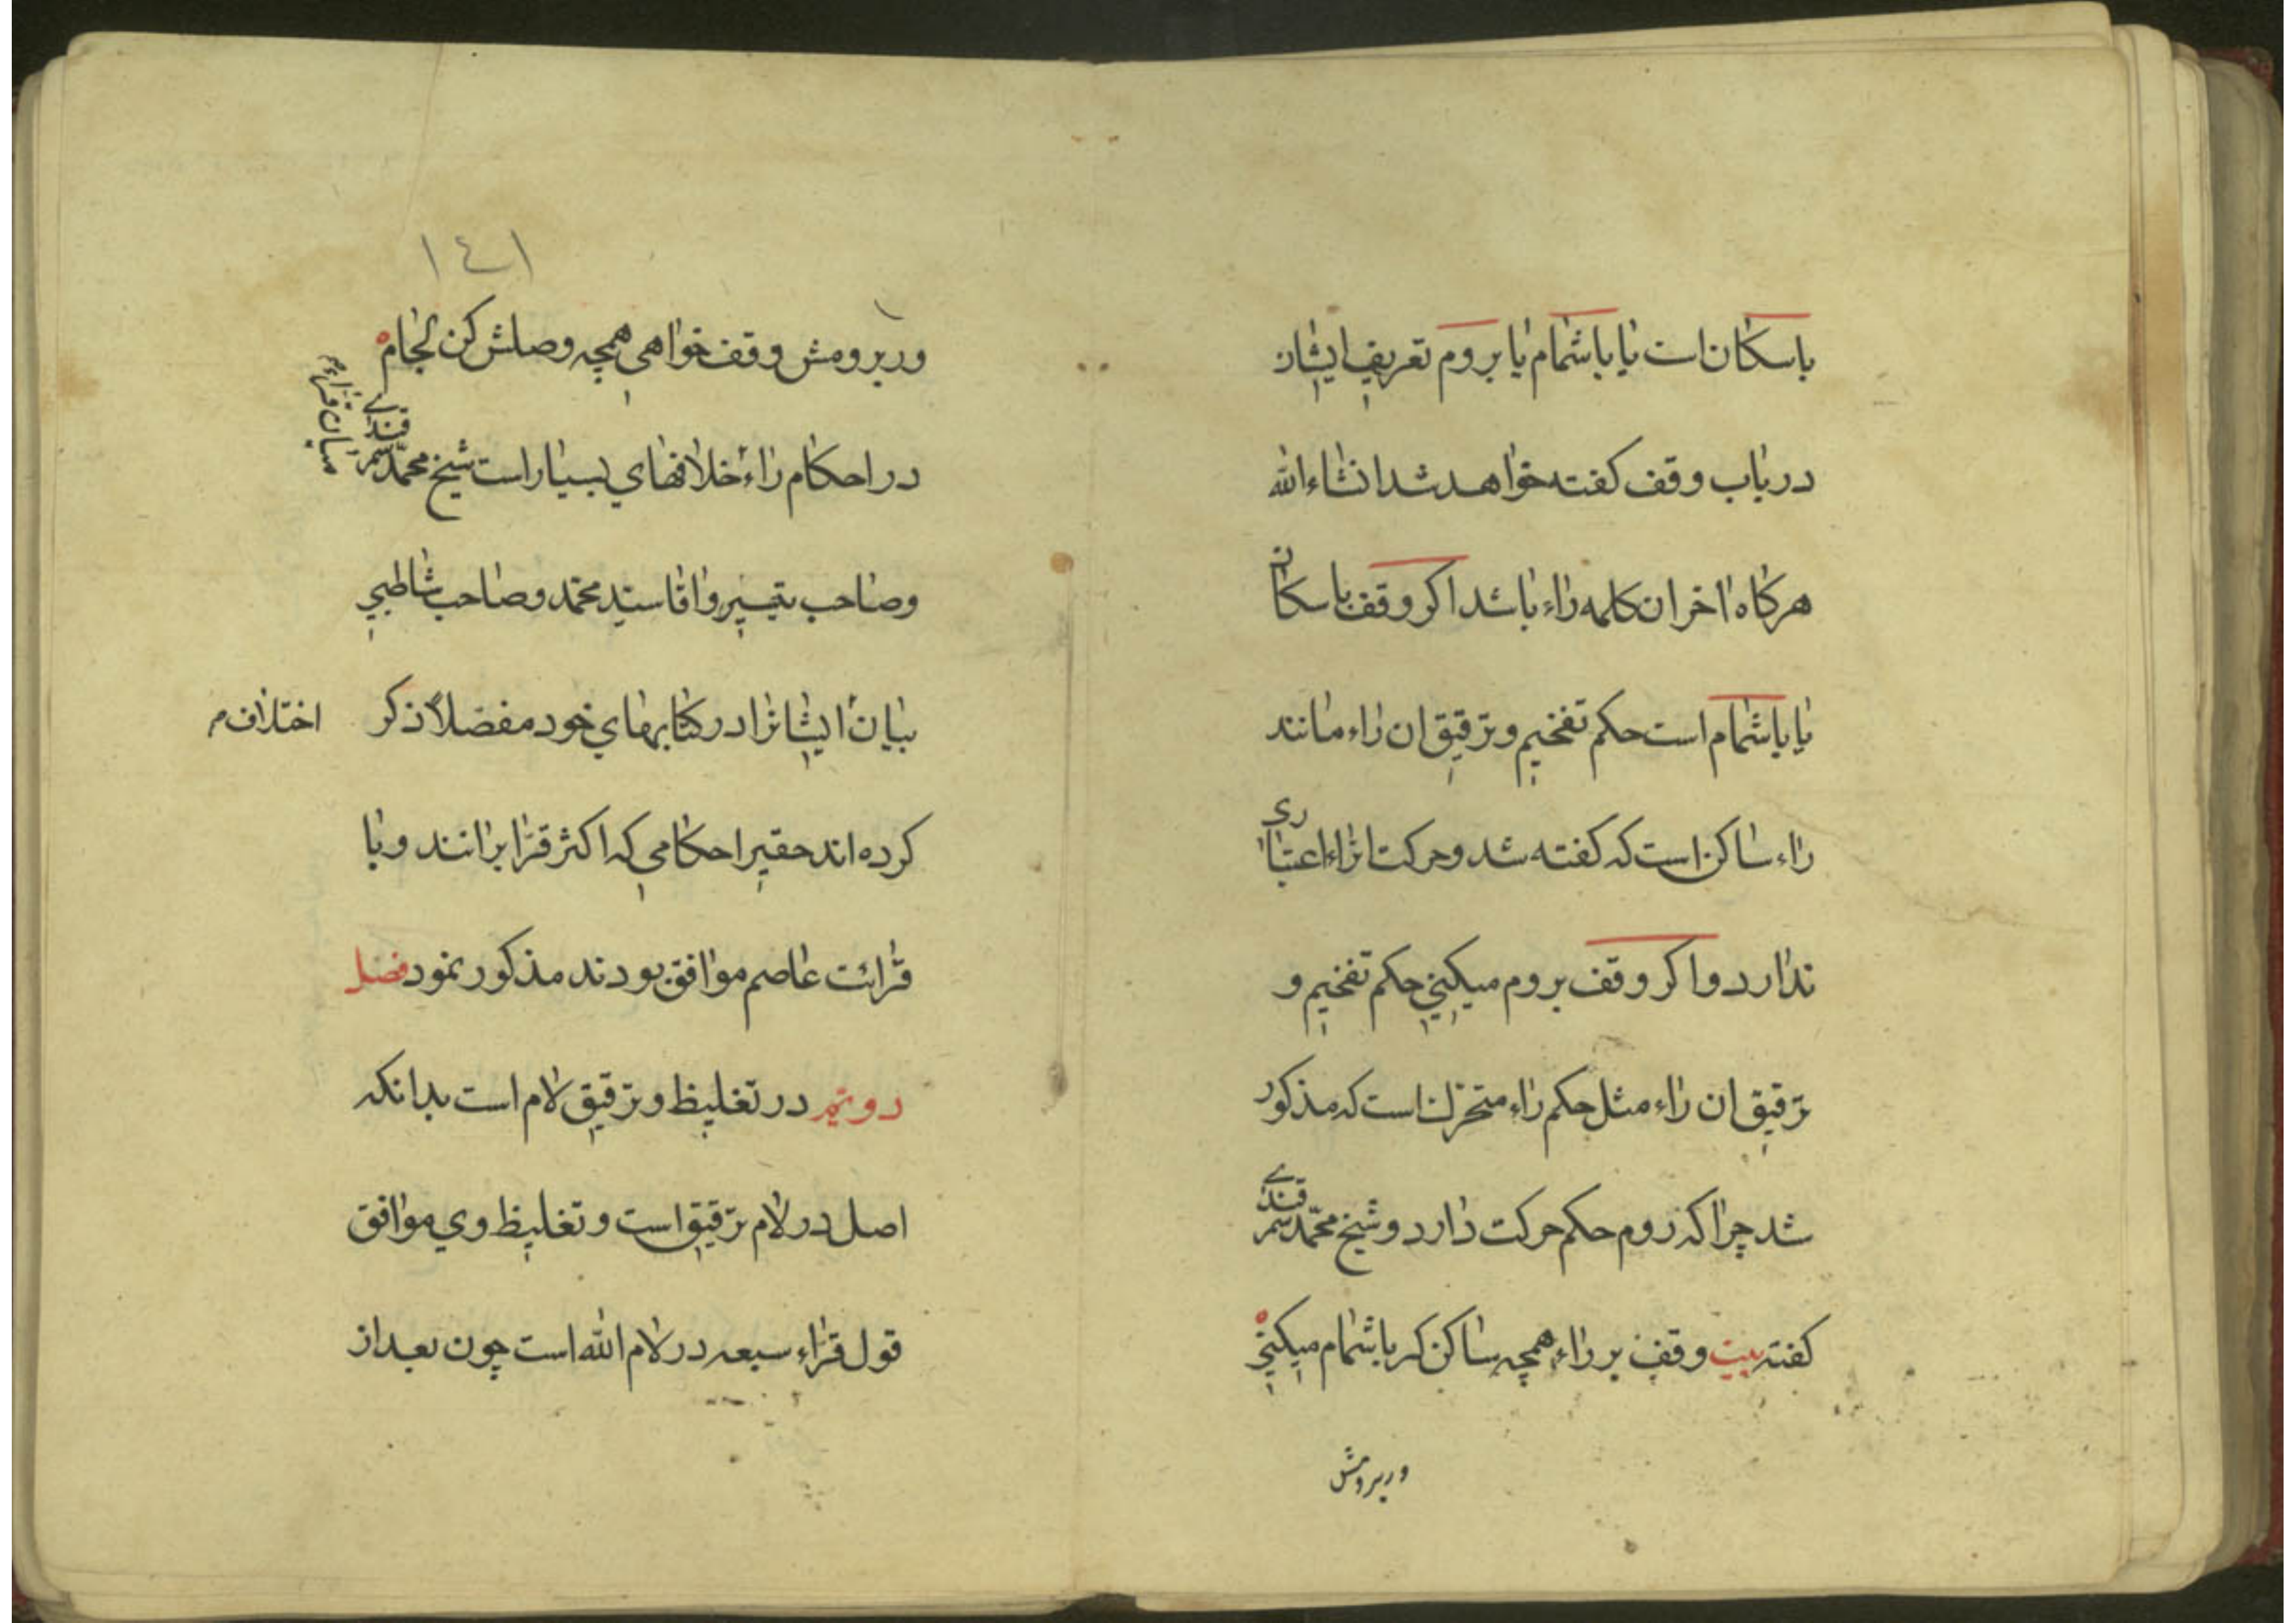 باسکان است یا باشمام یا بروم تعریف ایشان
در باب وقف کفته خواهد شد انشاء الله
هرکاه اخر ان کلمه راء باشد اکر وقف باسکان
یا باشمام است حکم تفخیم و ترقیق ان راء مانند
راء ساکن است که کفته شد و حرکت انراء اعتباری
ندارد و اکر وقف بروم میکنی حکم تفخیم و
ترقیق ان راء مثل حکم راء متحرک است که مذکور
شد چرا که روم حکم حرکت دارد و شیخ محمّد سمرقندی
کفته بیت وقف بر راء همچه ساکن کر باشمام میکنی
وربرومش
١٤١
وربرومش وقف خواهی همچه وصلش کن لجام
در احکام راء خلافهای بسیار است شیخ محمّد سمرقندی
میان قراء
و صاحب تیسیر و اقا سید محمّد و صاحب شاطبی
بیان ایشانرا در کتابهای خود مفصّلاً ذکر
اختلاف
کرده اند حقیر احکامی که اکثر قرّا برانند و با
قرائت عاصم موافق بودند مذکور نمود فصل
دویّم در تغلیظ و ترقیق لام است بدانکه
اصل در لام ترقیق است و تغلیظ وی موافق
قول قرّاء سبعه در لام الله است چون بعد از